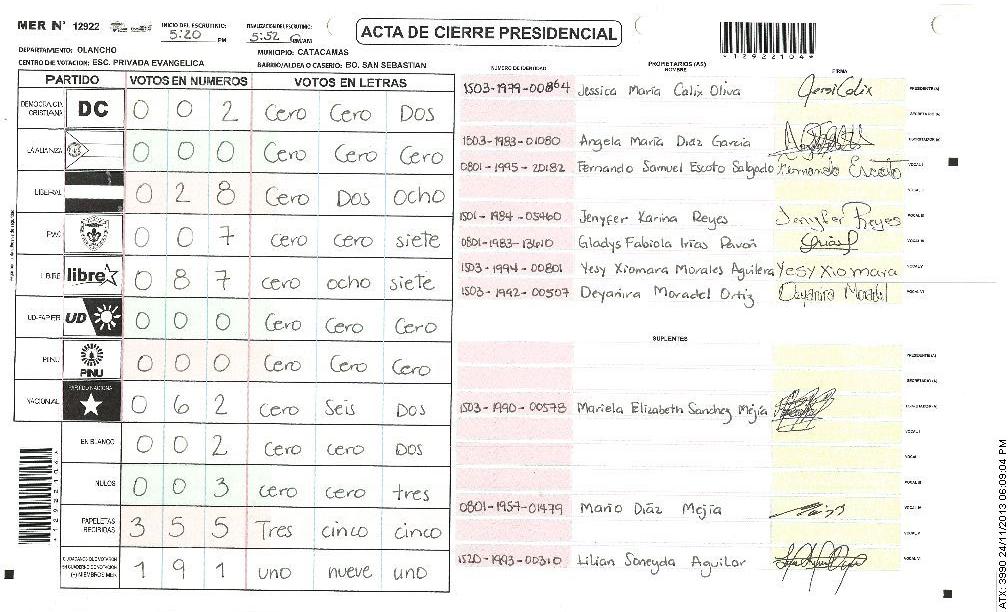 MER N° 12922
INICIO DEL ESCRUTINIO: 5:20 PM
FINALIZACION DEL ESCRUTINIO: 5:52 PM/AM
ACTA DE CIERRE PRESIDENCIAL
*12922104*
DEPARTAMENTO: OLANCHO
MUNICIPIO: CATACAMAS
CENTRO DE VOTACION: ESC. PRIVADA EVANGELICA
BARRIO/ALDEA O CASERIO: BO. SAN SEBASTIAN
PARTIDO VOTOS EN NUMEROS VOTOS EN LETRAS
DEMOCRACIA CRISTIANA DC 0 0 2 Cero Cero Dos
LA ALIANZA 0 0 0 Cero Cero Cero
LIBERAL 0 2 8 Cero Dos ocho
0 0 7 cero cero siete
LIBRE libre 0 8 7 cero ocho siete
UD-FAPER UD 0 0 0 Cero Cero Cero
PINU PINU 0 0 0 Cero Cero Cero
NACIONAL PARTIDO NACIONAL 0 6 2 cero Seis Dos
EN BLANCO 0 0 2 cero cero Dos
NULOS 0 0 3 cero cero tres
PAPELETAS RECIBIDAS 3 5 5 Tres cinco cinco
1 9 1 uno nueve uno
NUMERO DE IDENTIDAD PROPIETARIOS (AS) NOMBRE FIRMA
1503-1979-00864 Jessica María Calix Oliva PRESIDENTE (A)
SECRETARIO (A)
1503-1983-01080 Angela María Díaz García ESCRUTADOR (A)
0801-1995-20182 Fernando Samuel Escoto Salgado Fernando Escoto VOCAL I
VOCAL II
1501-1984-05460 Jenyfer Karina Reyes Jenyfer Reyes VOCAL III
0801-1983-13610 Gladys Fabiola Irías Pavón VOCAL IV
1503-1994-00801 Yesy Xiomara Morales Aguilera Yesy Xiomara VOCAL V
1503-1992-00507 Deyanira Moradel Ortiz Deyanira Moradel VOCAL VI
SUPLENTES
PRESIDENTE (A)
SECRETARIO (A)
1503-1990-00578 Mariela Elizabeth Sanchez Mejía ESCRUTADOR (A)
VOCAL I
VOCAL II
VOCAL III
0801-1957-01479 Mario Díaz Mejía VOCAL IV
VOCAL V
1520-1993-00310 Lilian Soneyda Aguilar VOCAL VI
ATX: 3990 24/11/2013 06:09:04 PM